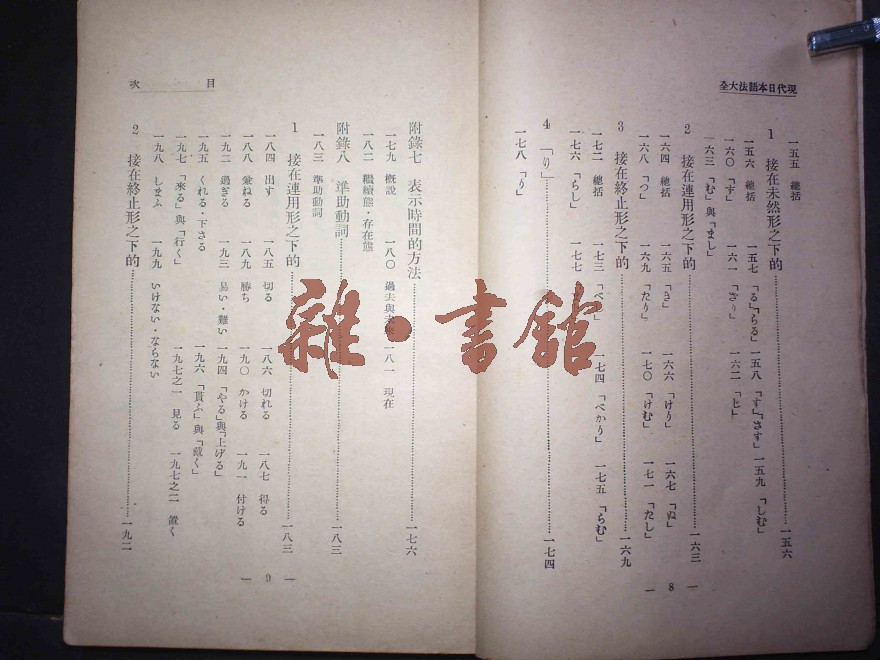 現代日本語法大全
一五五　總括
1　接在未然形之下的……一五六
一五六　總括　一五七　「る」「らる」　一五八　「す」「さす」　一五九　「しむ」
一六〇　「ず」　一六一　「ざり」　一六二　「じ」
一六三　「む」與「まし」
2　接在連用形之下的……一六三
一六四　總括　一六五　「き」　一六六　「けり」　一六七　「ぬ」
一六八　「つ」　一六九　「たり」　一七〇　「けむ」　一七一　「たし」
3　接在終止形之下的……一六九
一七二　總括　一七三　「べ　一七四　「べかり」　一七五　「らむ」
一七六　「らし」　一七七
4　「り」……一七四
一七八　「り」
— 8 —
目　次
附錄七　表示時間的方法……一七六
一七九　概說　一八〇　過去與　一八一　現在
一八二　繼續態・存在態
附錄八　準助動詞……一八三
一八三　準助動詞
1　接在連用形之下的……一八三
一八四　出す　一八五　切る　一八六　切れる　一八七　得る
一八八　兼ねる　一八九　勝ち　一九〇　かける　一九一　付ける
一九二　過ぎる　一九三　易い・難い　一九四　「やる」與「上げる」
一九五　くれる・下さる　一九六　「貰ふ」與「戴く」
一九七　「來る」與「行く」　一九七之一　見る　一九七之二　置く
一九八　しまふ　一九九　いけない・ならない
2　接在終止形之下的……一九二
— 9 —
雜・書館